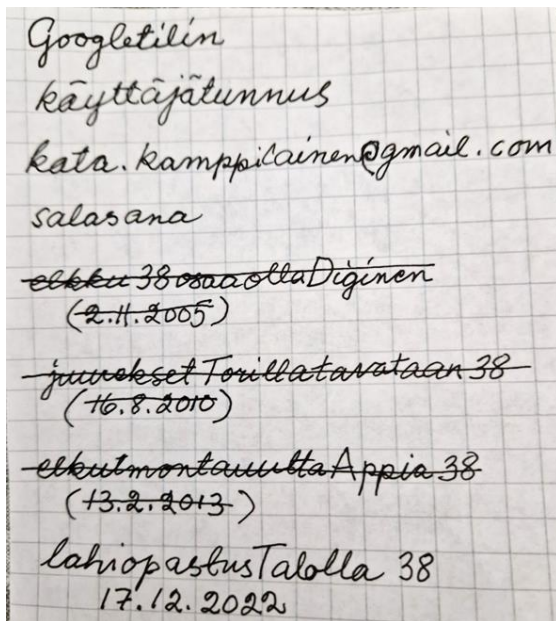 Googletilin
käyttäjätunnus
kata.kamppilainen@gmail.com
salasana
elkku 38 osaaollaDiginen
(2.11.2005)
juuvekset Torillatavataan 38
(16.8.2010)
elkutmontauuttaAppia 38
(13.2.2013)
lahiopastusTalolla 38
17.12.2022